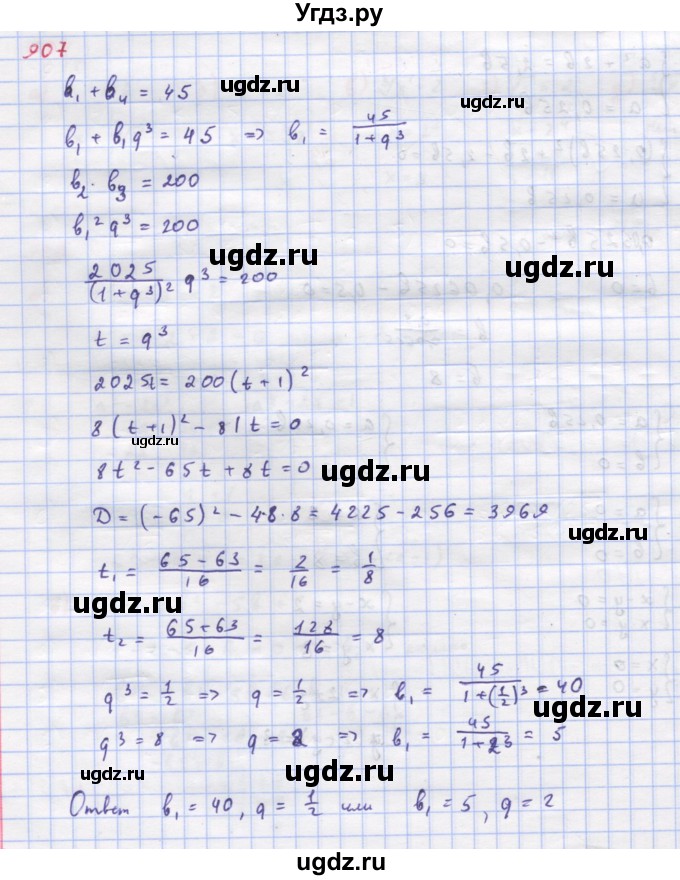 Угдз.ру
907
b₁ + b₄ = 45
ugdz.ru
ugdz.ru
b₁ + b₁q³ = 45 => b₁ = 45/(1+q³)
ugdz.ru
b₂ · b₃ = 200
b₁²q³ = 200
ugdz.ru
ugdz.ru
2025/(1+q³)² q³ = 200
t = q³
ugdz.ru
2025t = 200(t+1)²
8(t+1)² - 81t = 0
ugdz.ru
8t² - 65t + 8t = 0
ugdz.ru
D = (-65)² - 4·8·8 = 4225 - 256 = 3969
ugdz.ru
t₁ = (65-63)/16 = 2/16 = 1/8
ugdz.ru
ugdz.ru
t₂ = (65+63)/16 = 128/16 = 8
ugdz.ru
q³ = 1/2 => q = 1/2 => b₁ = 45/(1+(1/2)³) = 40
ugdz.ru
q³ = 8 => q = 2 => b₁ = 45/(1+2³) = 5
ugdz.ru
ugdz.ru
Ответ b₁ = 40, q = 1/2 или b₁ = 5, q = 2
ugdz.ru
ugdz.ru